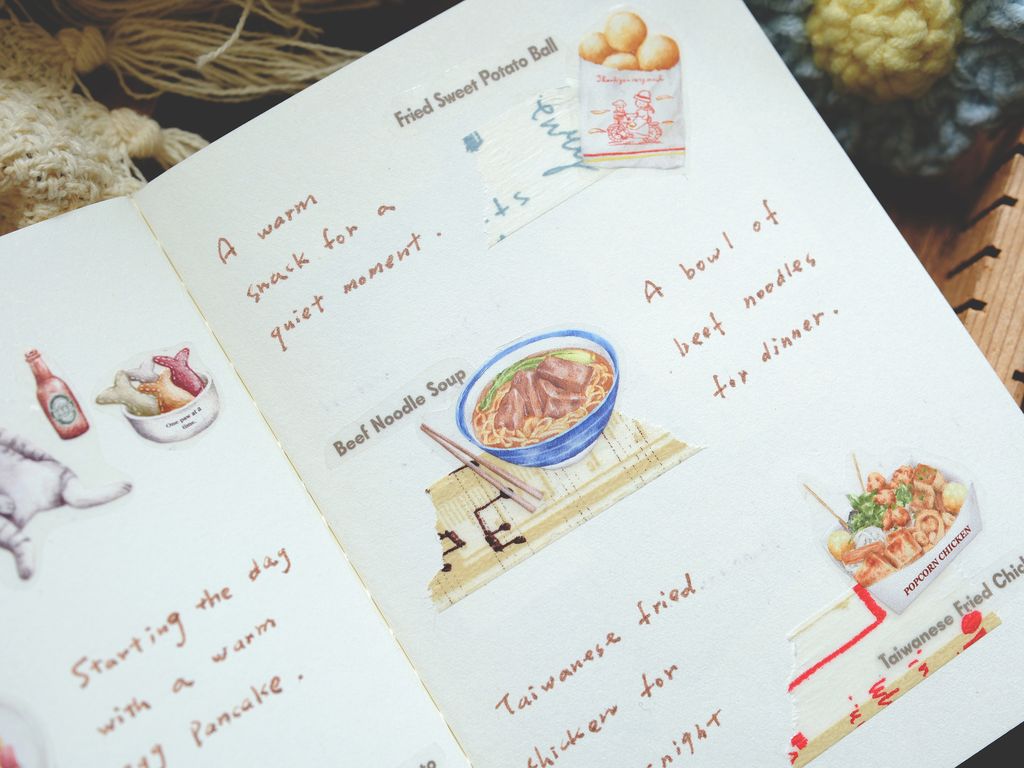 One paw at a
time.
Starting the day
with a warm
egg pancake.
Fried Sweet Potato Ball
Thank you very much
A warm
snack for a
quiet moment.
A bowl of
beef noodles
for dinner.
Beef Noodle Soup
POPCORN CHICKEN
Taiwanese Fried
Taiwanese fried
chicken for